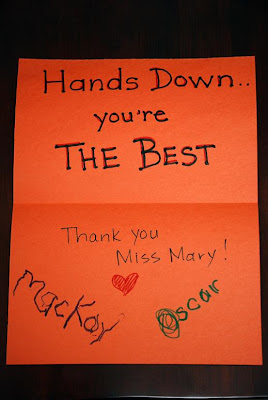 Hands Down..
you're
THE BEST
Thank you
Miss Mary!
Mackay
Oscar